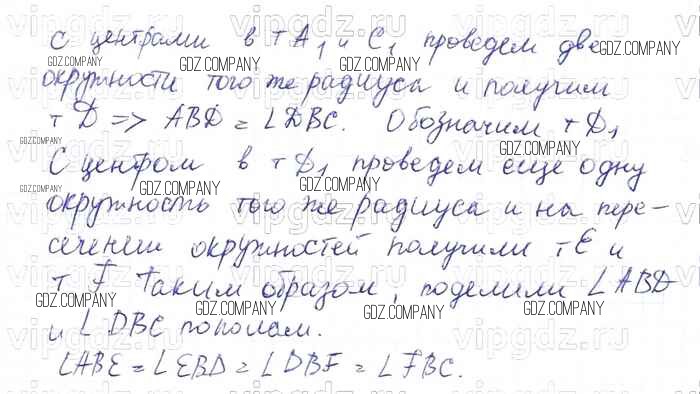 С центрами в т A₁ и C₁ проведем две
окружности того же радиуса и получим
т D => ABD = ∠DBC. Обозначим т D₁
С центром в т D₁ проведем еще одну
окружность того же радиуса и на пере-
сечении окружностей получили т E и
т F Таким образом, поделили ∠ABD
и ∠DBC пополам.
∠ABE = ∠EBD = ∠DBF = ∠FBC.